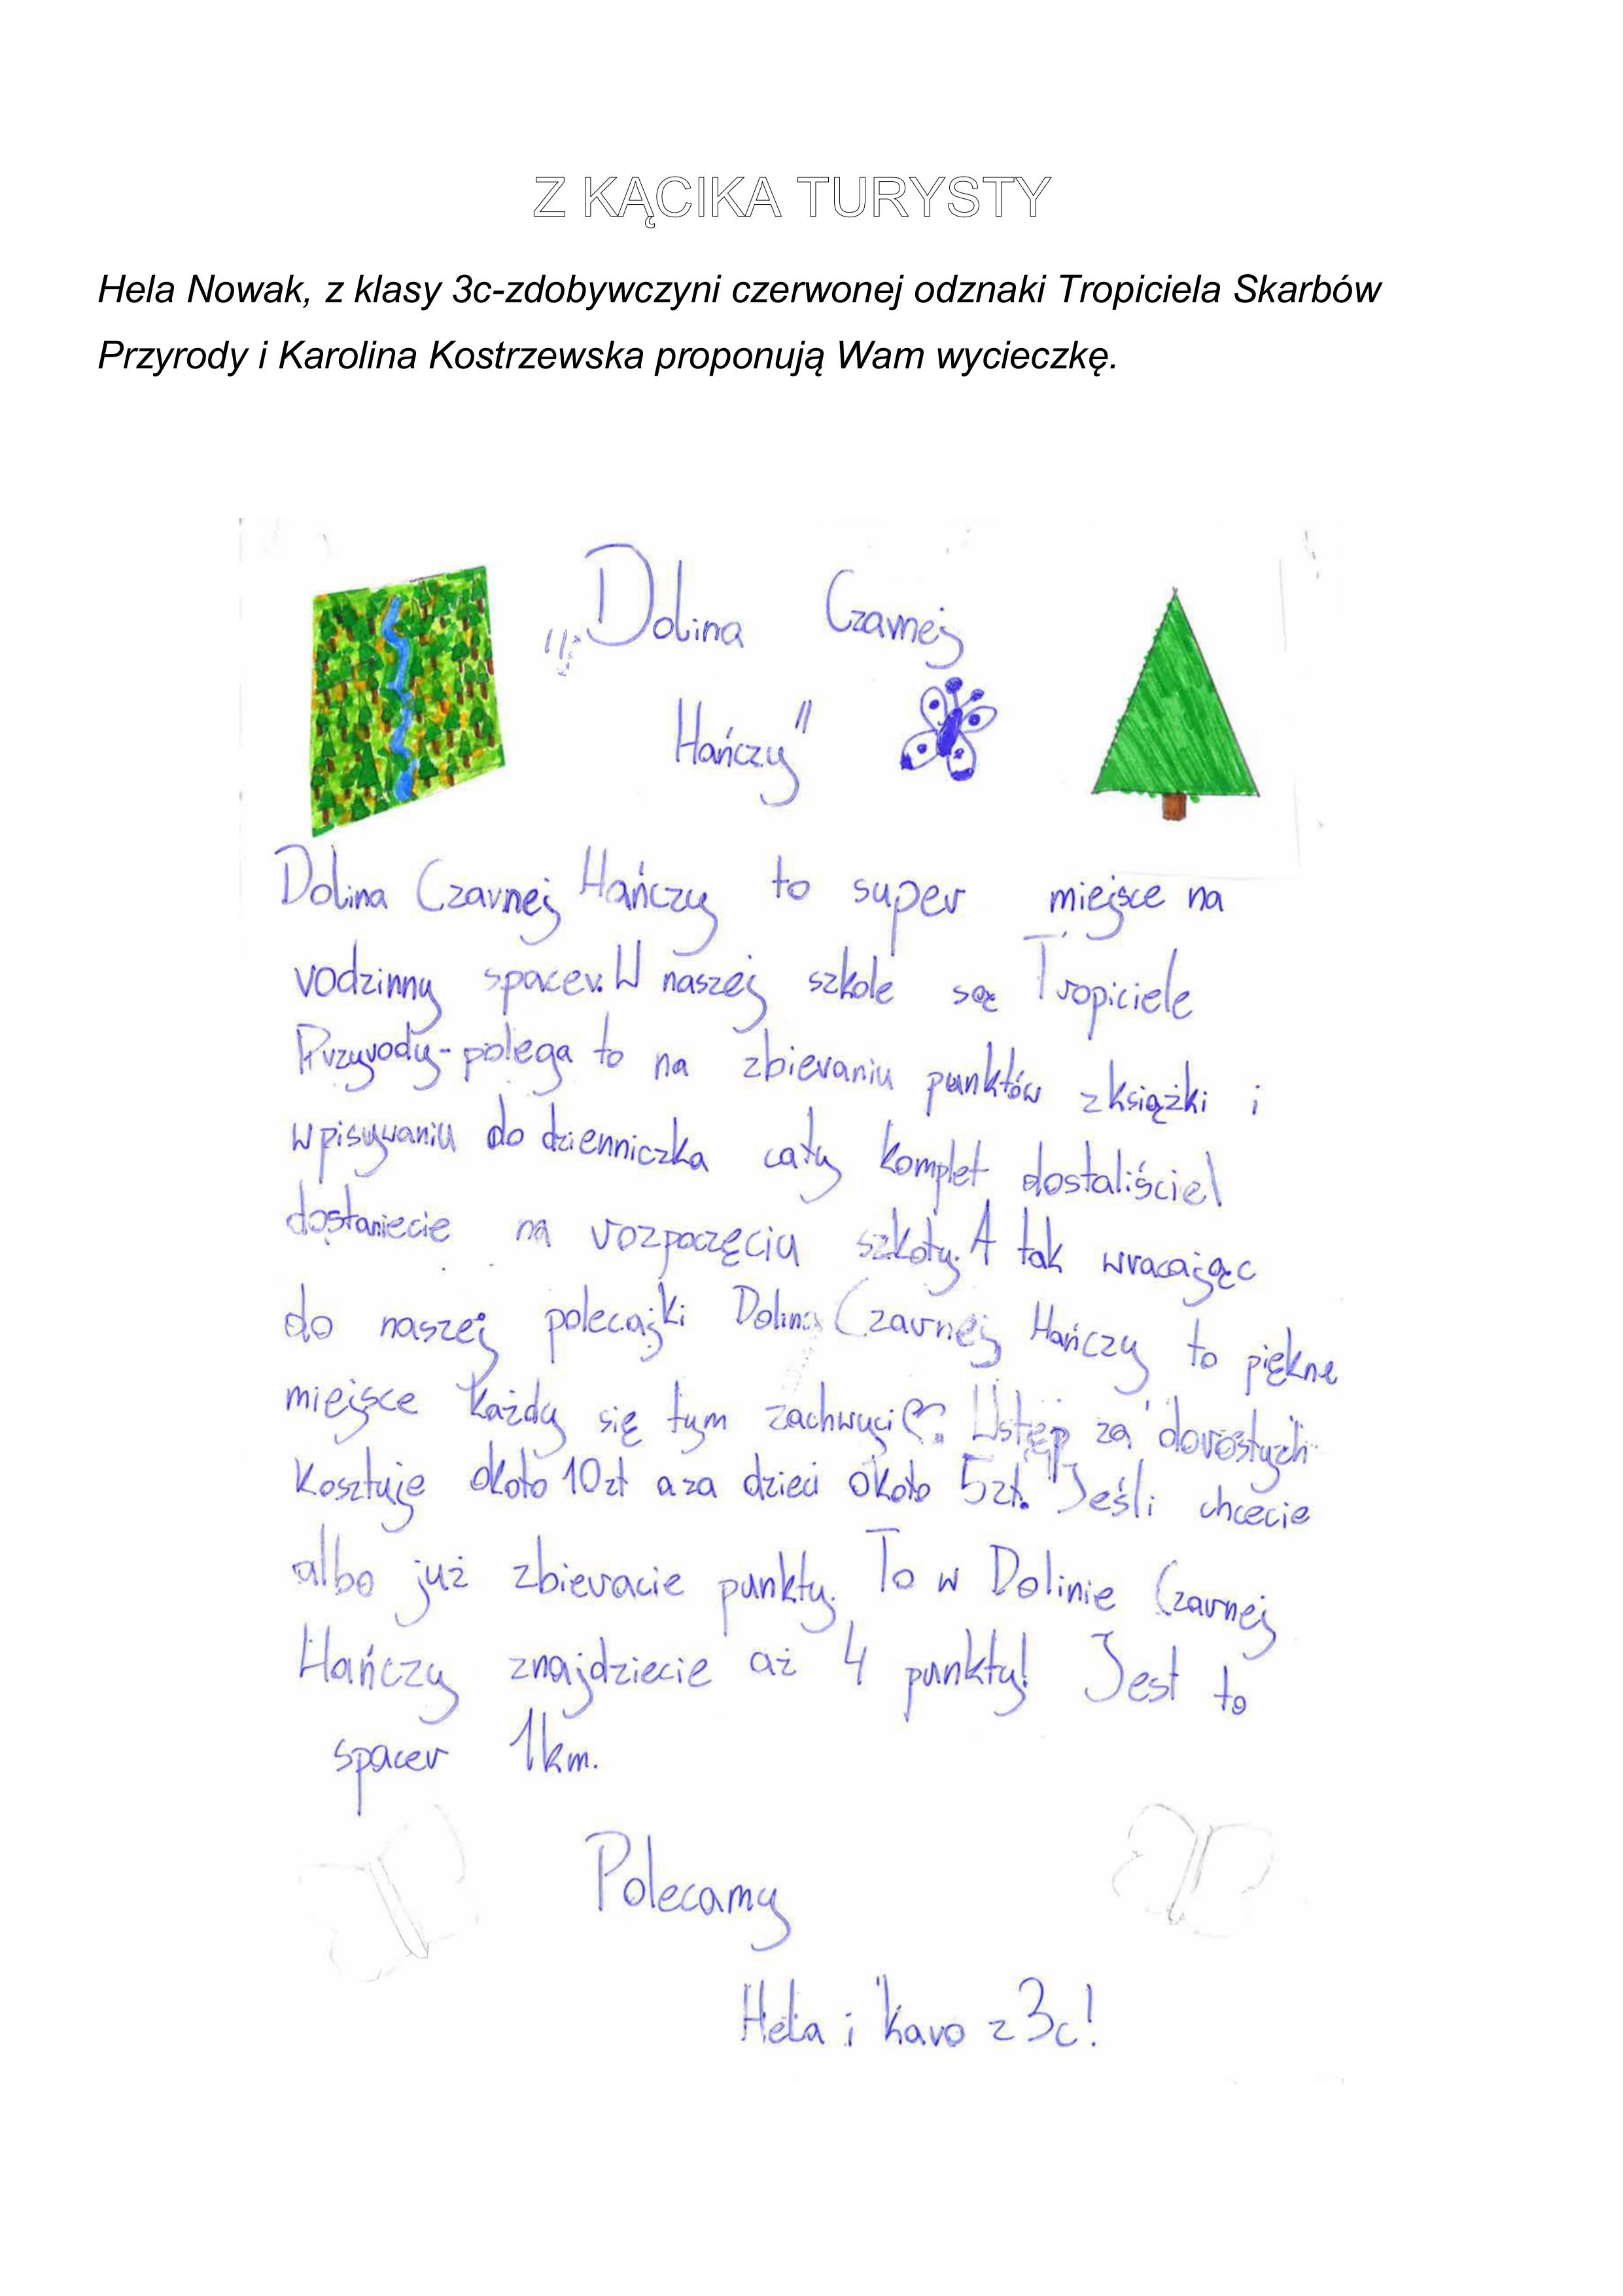 Z KĄCIKA TURYSTY
Hela Nowak, z klasy 3c-zdobywczyni czerwonej odznaki Tropiciela Skarbów
Przyrody i Karolina Kostrzewska proponują Wam wycieczkę.
„Dolina Czarnej
Hańczy"
Dolina Czarnej Hańczy to super miejsce na
rodzinny spacer. W naszej szkole są Tropiciele
Przyrody-polega to na zbieraniu punktów z książki i
wpisywaniu do dzienniczka cały komplet dostaliście\
dostaniecie na rozpoczęciu szkoły. A tak wracając
do naszej polecajki Dolina Czarnej Hańczy to piękne
miejsce każdy się tym zachwyci Wstęp za dorosłych
kosztuje około 10zł a za dzieci około 5zł. Jeśli chcecie
albo już zbieracie punkty. To w Dolinie Czarnej
Hańczy znajdziecie aż 4 punkty! Jest to
spacer 1km.
Polecamy
Hela i Karo z 3c!